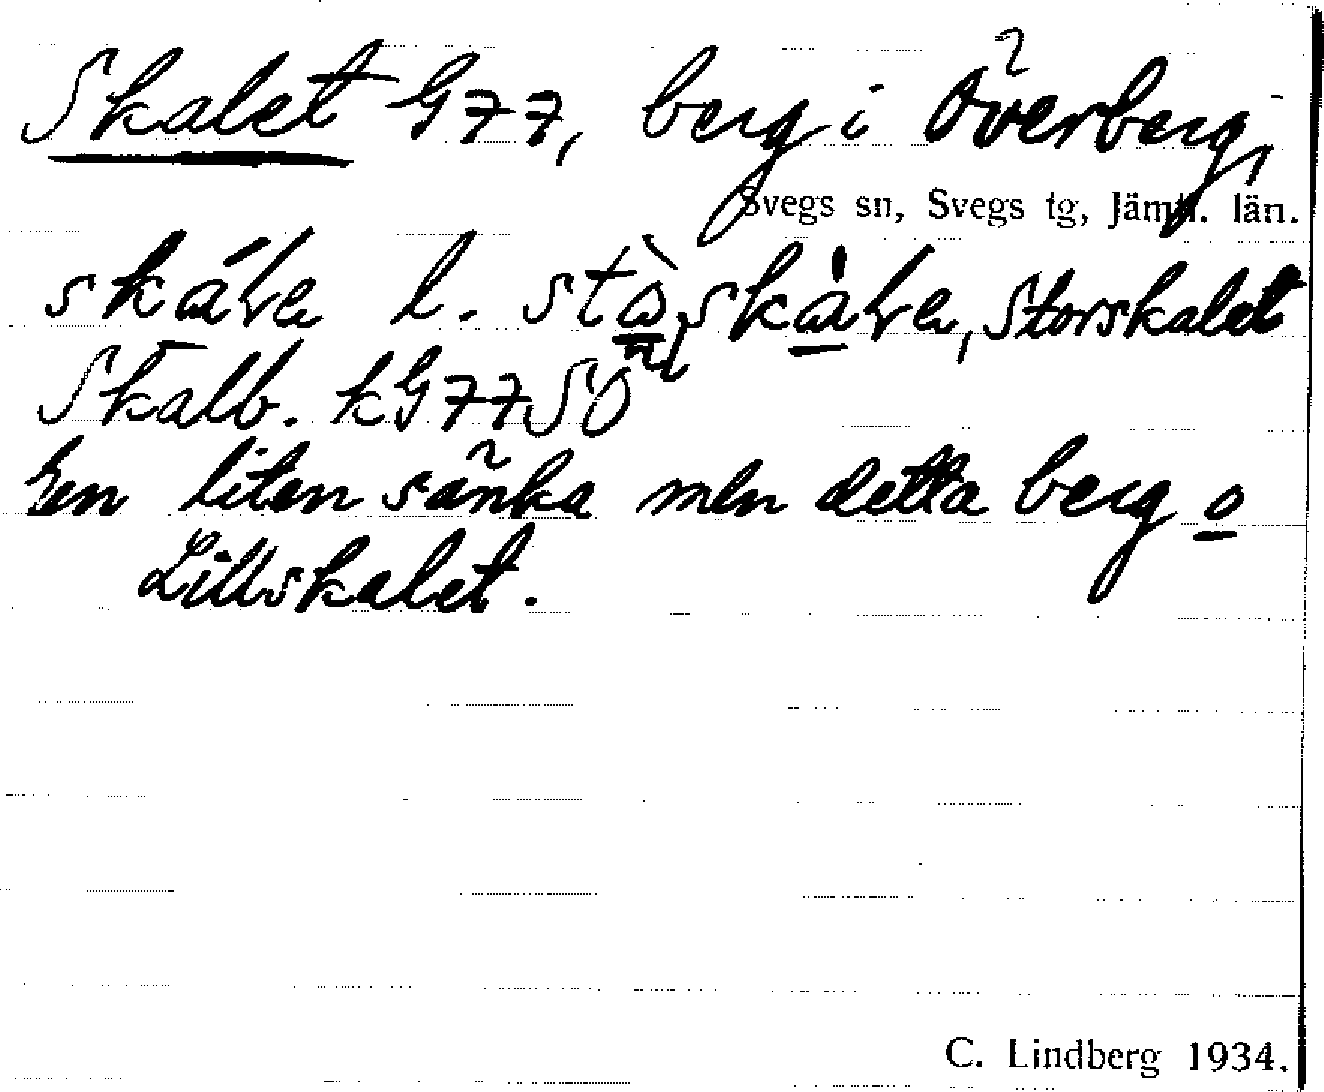 Skalet G77, berg i Överberg,
Svegs sn, Svegs tg, Jämtl. län.
l. Storskalet
Skalb. kG77SO
En liten sänka mln detta berg o
Lillskalet.
C. Lindberg 1934.